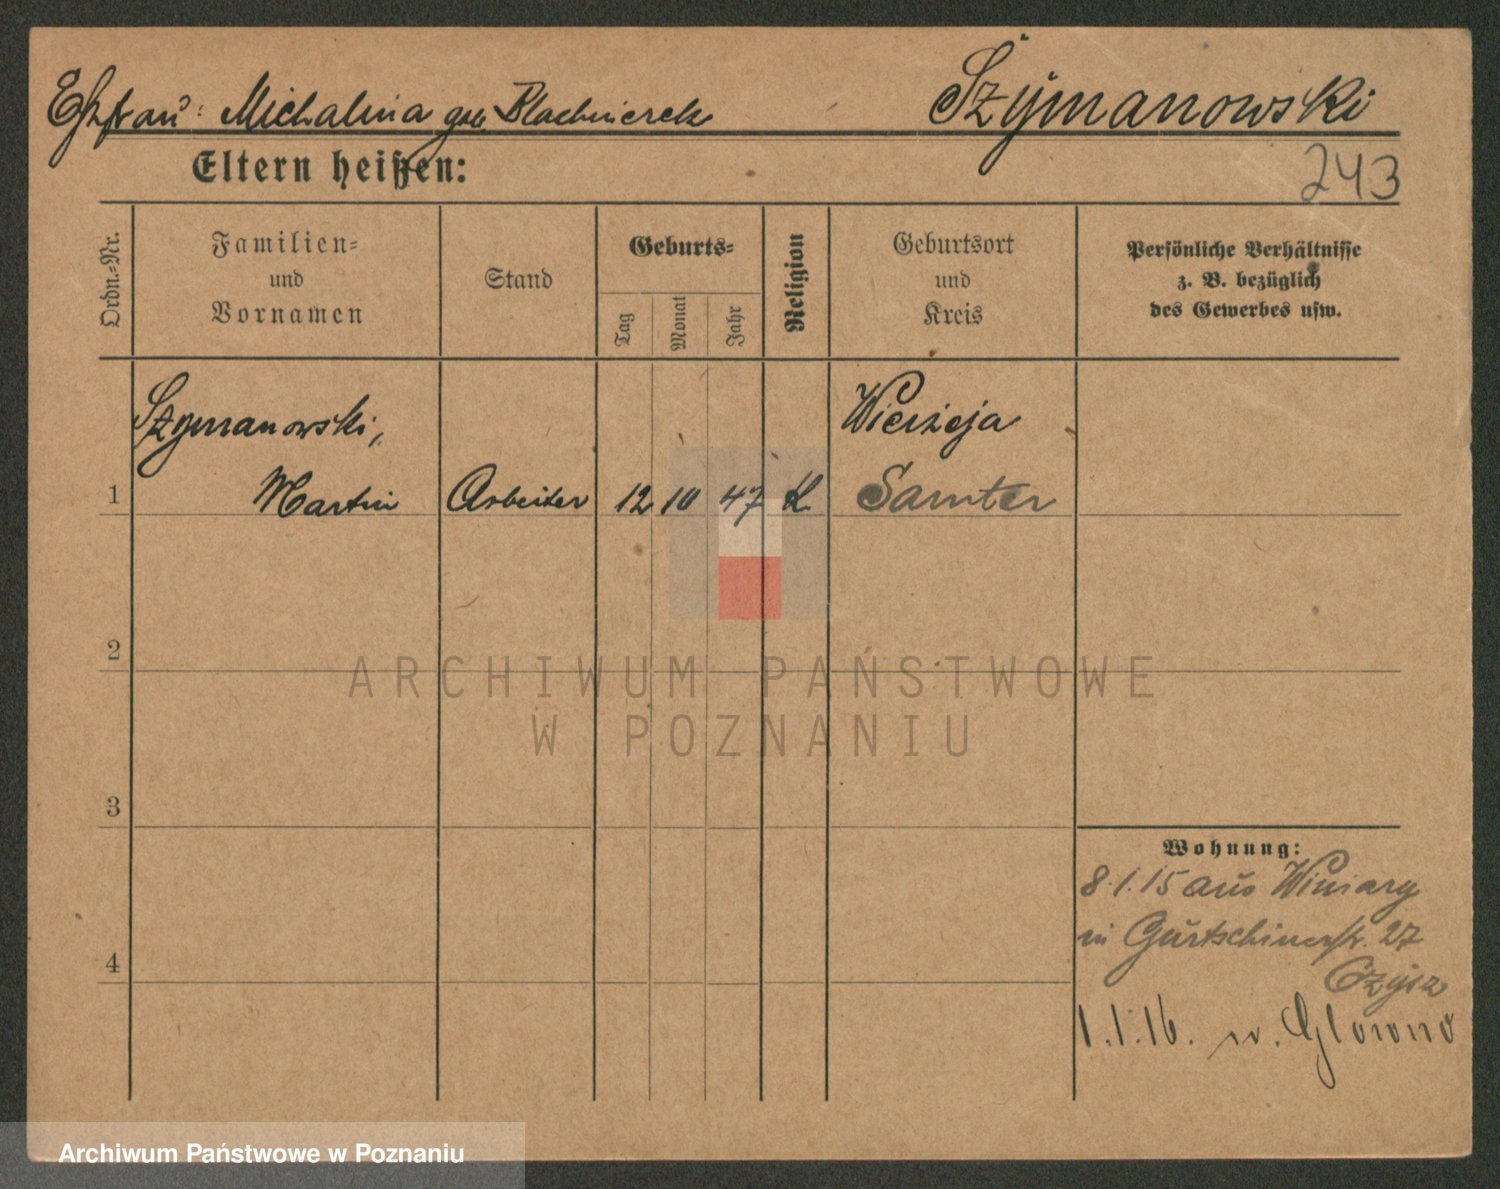 Ehefrau: Michalina geb. Blachnierek Szymanowski
Eltern heißen:
243
Ordn.=Nr.
Familien=
und
Vornamen
Stand
Geburts=
Tag
Monat
Jahr
Religion
Geburtsort
und
Kreis
Persönliche Verhältnisse
z. B. bezüglich
des Gewerbes usw.
Szymanowski, Wierzeja
1 Martin Arbeiter 12 10 47 K. Samter
2
ARCHIWUM PAŃSTWOWE
W POZNANIU
3
Wohnung:
8.1.15 aus Winiary
in Gurtschinerstr. 27
4
1.1.16. n. Glowno
Archiwum Państwowe w Poznaniu